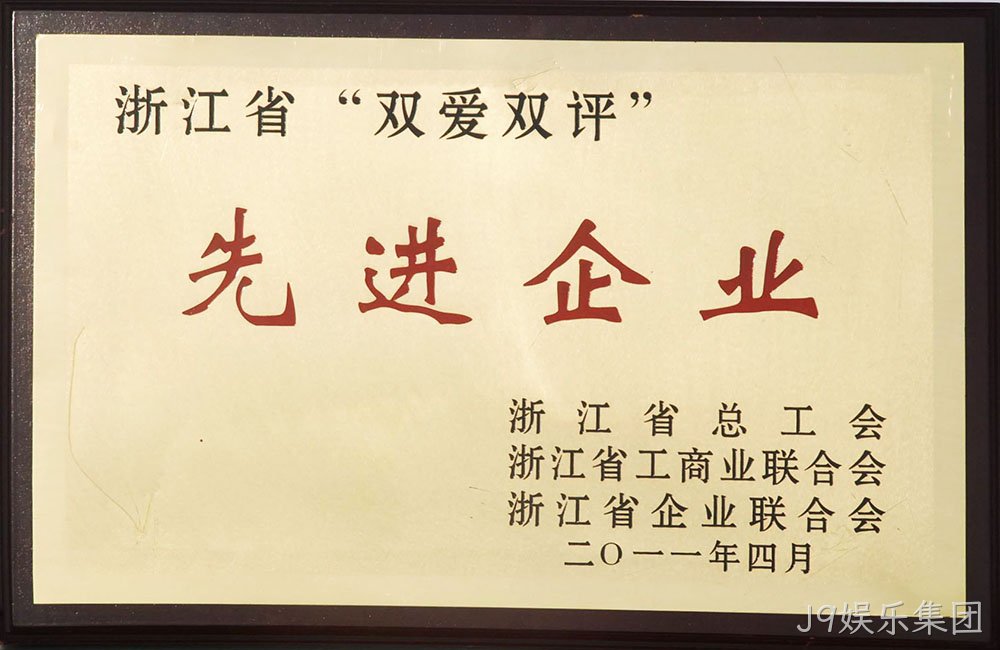 浙江省“双爱双评”
先进企业
浙江省总工会
浙江省工商业联合会
浙江省企业联合会
二〇一一年四月
J9娱乐集团